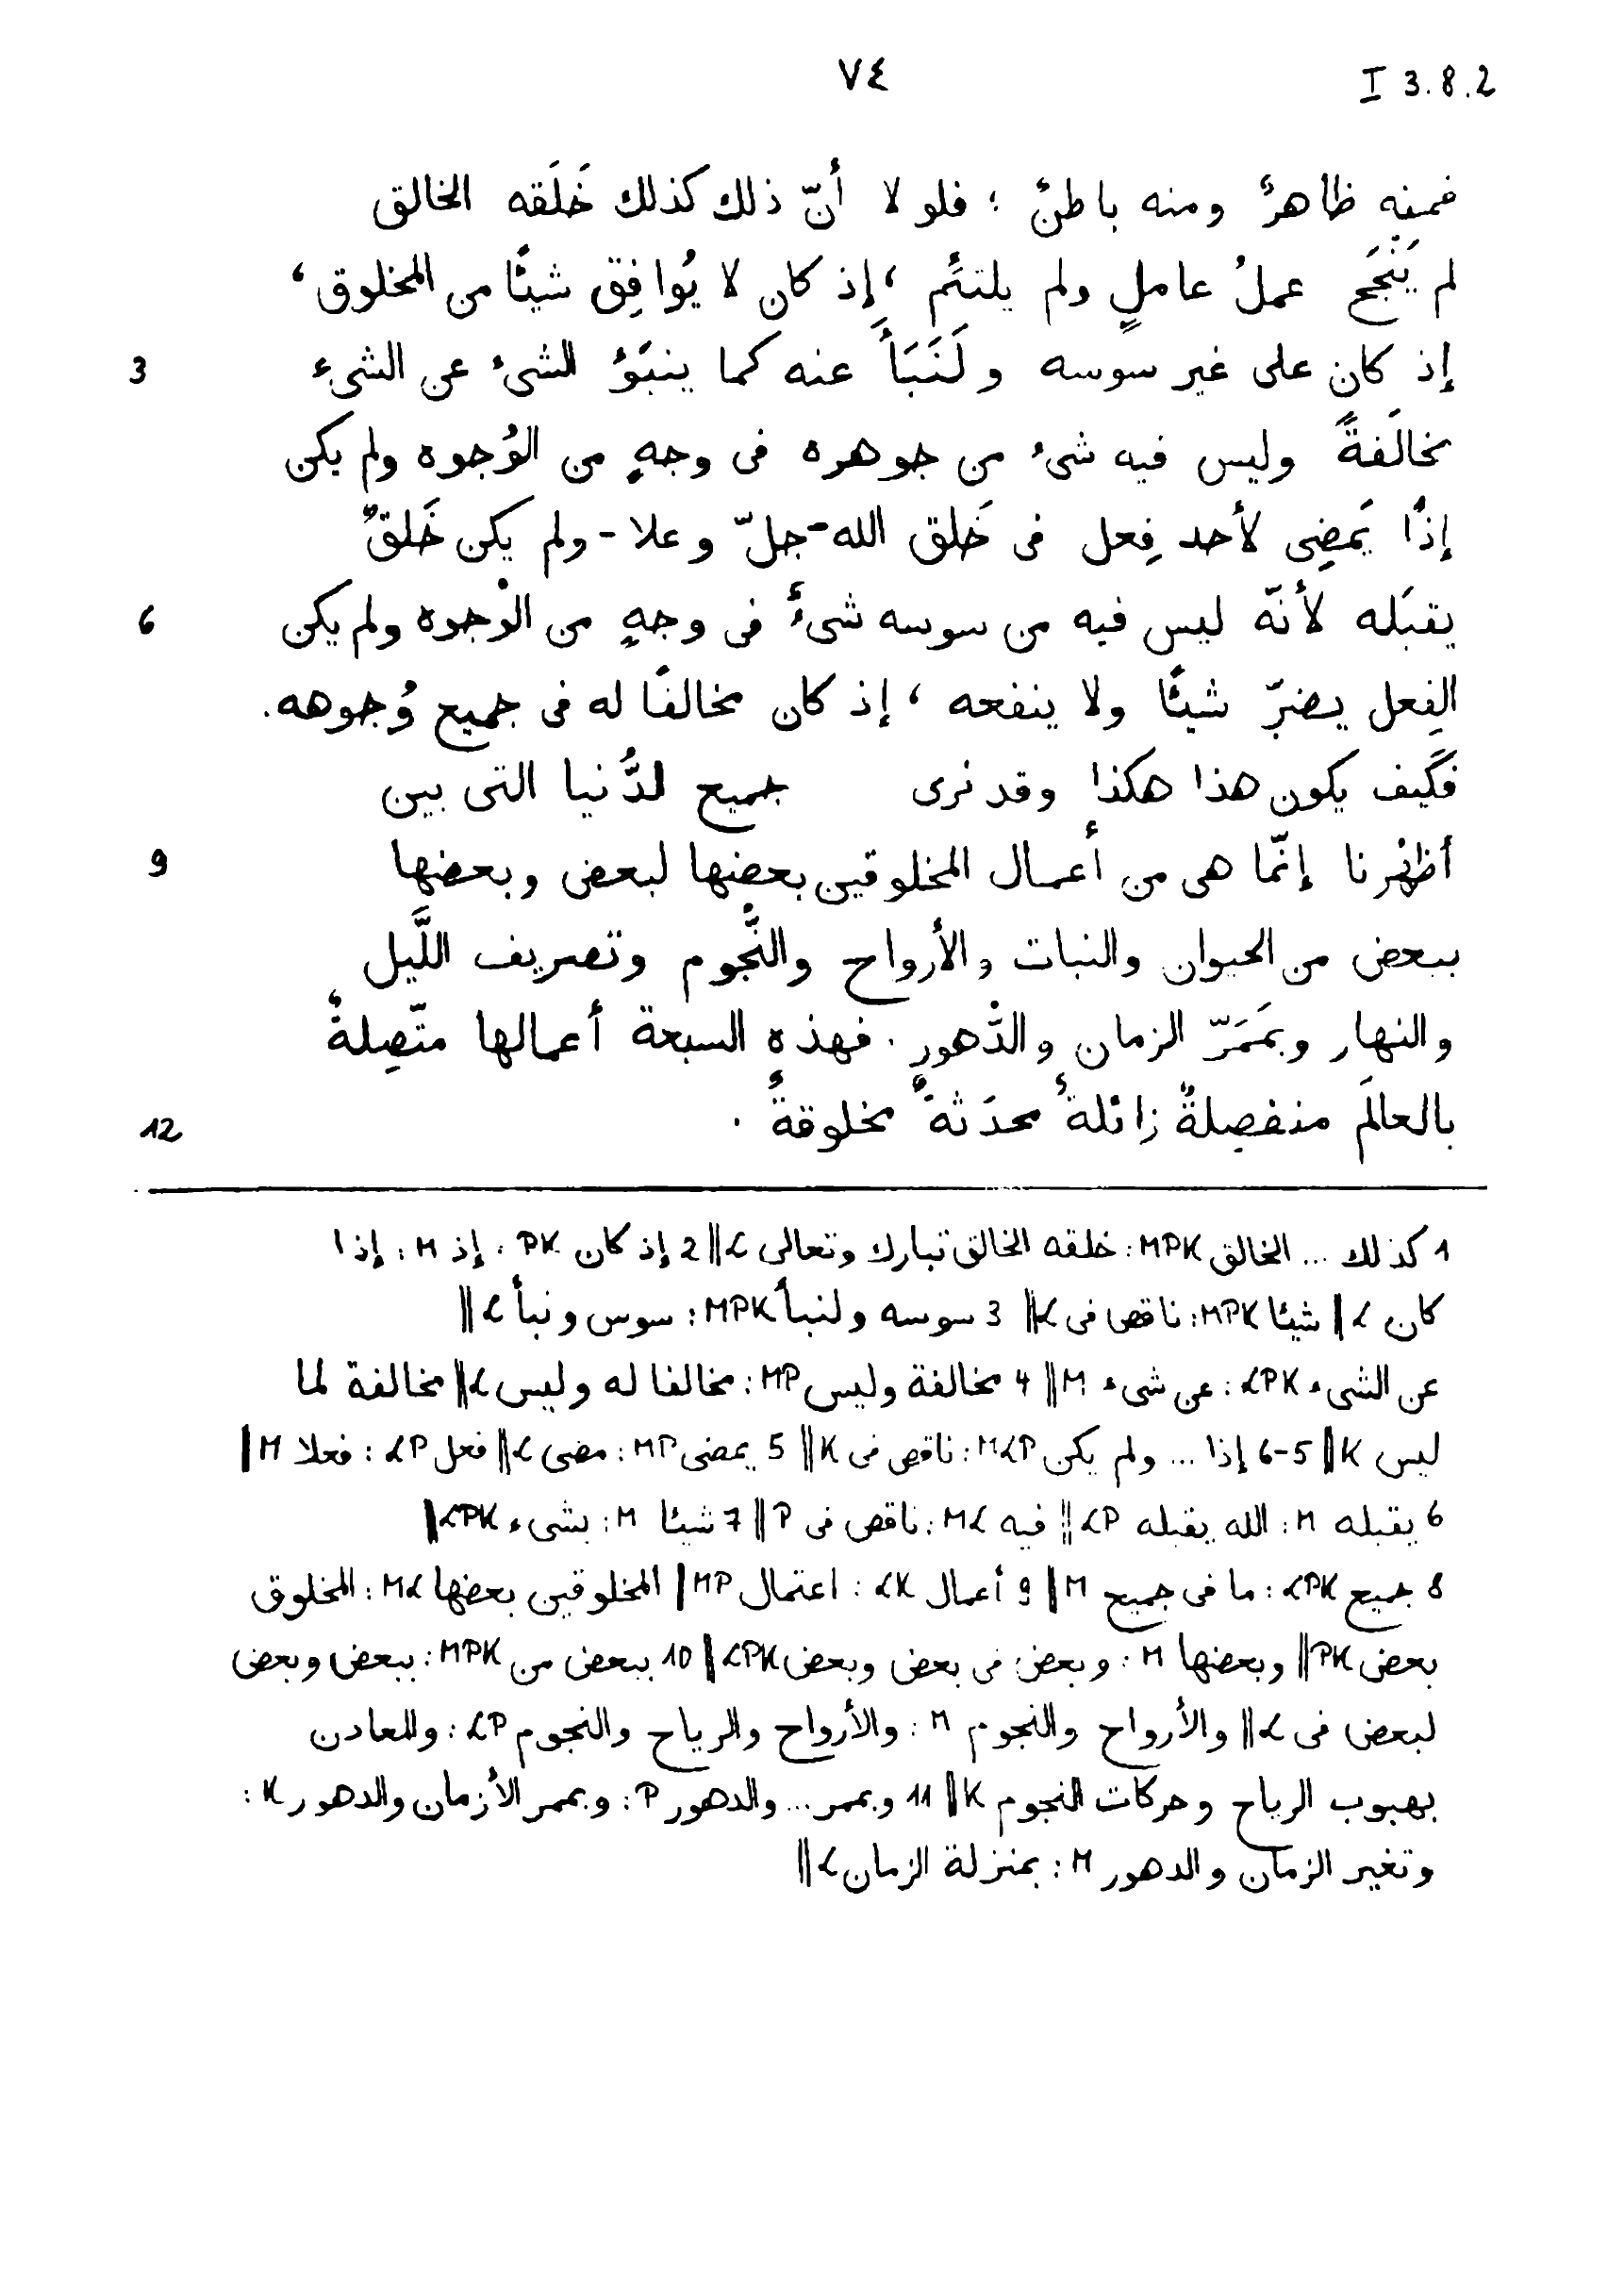 ٧٤
I 3.8.2
فمنه ظاهرٌ ومنه باطنٌ ؛ فلو لا أنّ ذلك كذلك خَلَقه الخالق
لم يَنْجَح عملُ عاملٍ ولم يلتئَم ، إذ كان لا يُوافِق شيئًا من المخلوق،
3 إذ كان على غير سوسه ولَنَبَأَ عنه كما ينبَؤُ الشىء عن الشىء
مخالَفةً وليس فيه شىء من جوهره فى وجهٍ من الوُجوه ولم يكن
إذًا يَمضِى لأحد فِعل فى خَلق الله - جلّ وعلا - ولم يكن خَلقٌ
6 يقبَله لأنّه ليس فيه من سوسه شىءٌ فى وجهٍ من الوُجوه ولم يكن
الفِعل يضرّ شيئًا ولا ينفعه ، إذ كان مخالفًا له فى جميع وُجوهه.
فكَيف يكون هذا هكذا وقد نرى جميع الدُّنيا التى بين
9 أظهُرنا إنّما هى من أعمال المخلوقين بعضها لبعض وبعضها
ببعض من الحيوان والنبات والأرواح والنُّجوم وتصريف اللَّيل
والنهار وبمَمَرّ الزمان والدُّهور . فهذه السبعة أعمالها متّصِلةٌ
12 بالعالَم منفصِلةٌ زائلةٌ محدَثةٌ مخلوقةٌ .
1 كذلك ... الخالق MPK : خلقه الخالق تبارك وتعالى L || 2 إذ كان PK : إذ M : إذا
كان L | شيئا MPK : ناقص فى L || 3 سوسه ولنبأ MPK : سوس ونبأ L ||
عن الشىء LPK : عن شىء M || 4 مخالفة وليس MP : مخالفا له وليس L || مخالفة لما
ليس K || 5-6 إذا ... ولم يكن MLP : ناقص فى K || 5 يمضى MP : مضى L || فعل LP : فعلا M |
6 يقبله M : الله يقبله LP || فيه ML : ناقص فى P || 7 شيئا M : بشىء LPK |
8 جميع LPK : ما فى جميع M || 9 أعمال LK : اعتمال MP | المخلوقين بعضها ML : المخلوق
بعض PK || وبعضها M : وبعض فى بعض وبعض LPK || 10 ببعض من MPK : ببعض وبعض
لبعض فى L || والأرواح والنجوم M : والأرواح والرياح والنجوم LP : والمعادن
بهبوب الرياح وحركات النجوم K || 11 وبممر ... والدهور P : وبممر الأزمان والدهور K :
وتغير الزمان والدهور M : بمنزلة الزمان L ||